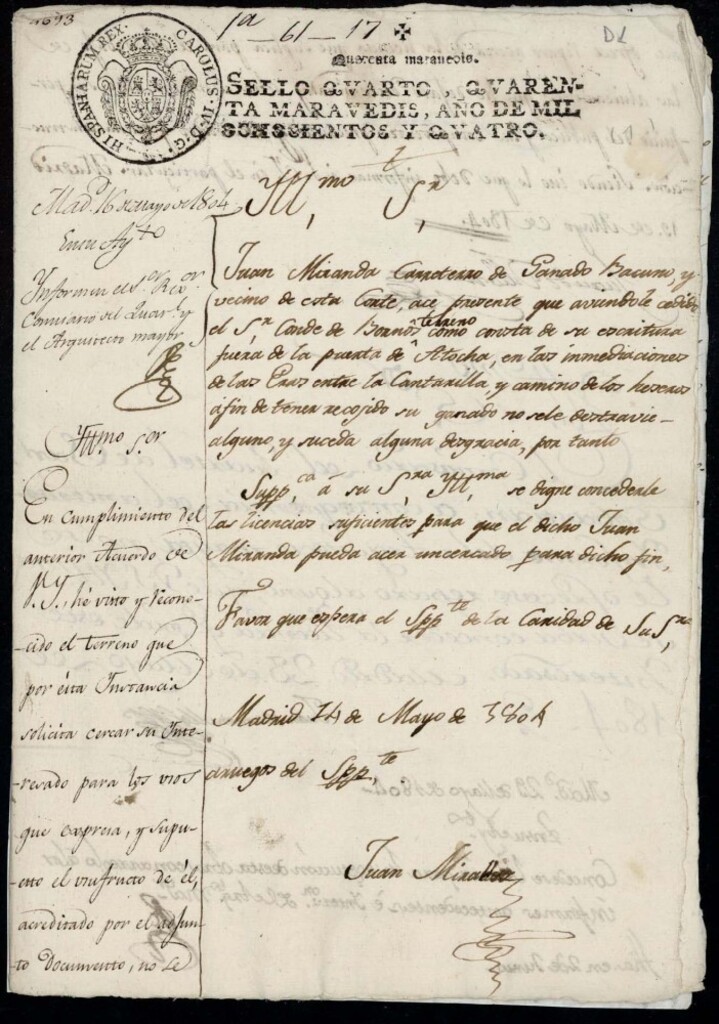 1ª 61-17
D1
HISPANIARUM REX. CAROLUS IV. D. G.
Quarenta maravedis.
SELLO QVARTO, QVAREN-
TA MARAVEDIS, AÑO DE MIL
OCHOCIENTOS Y QVATRO.
Madᵈ 16 de mayo de 1804
En su Ayᵗᵒ
Informen el Sᵒʳ Rexᵒʳ
Comisario del Quarˡ y
el Arquitecto mayor
Yllᵐᵒ Sᵒʳ
En cumplimiento del
anterior Acuerdo de
V.I., hé visto y recono-
-cido el terreno que
por ésta Instancia
solicita cercar su Inte-
-resado para los usos
que expresa, y supu-
-esto el usufructo de él,
acreditado por el adjun-
to Documento, no se
Yllᵐᵒ Sʳ
Juan Miranda Carreterro de Ganado Bacuno, y
vecino de esta Corte, ace presente que aviendole cedido
el Sʳ Conde de Bornos terreno como consta de su escritura
fuera de la puerta de Atocha, en las inmediaciones
de las Eras entre la Cantarilla, y camino de los
afin de tener recojido su ganado no sele destravie-
alguno, y suceda alguna desgracia, por tanto
Suppᶜᵃ á su Sʳᵃ Yllᵐᵃ se digne concederle
las licencias suficientes para que el dicho Juan
Miranda pueda acer uncercado para dicho fin,
Favor que espera el Sppᵗᵉ de la Caridad de Su Sʳᵃ
Madrid 14 de Mayo de 1804
aruegos del Sppᵗᵉ
Juan